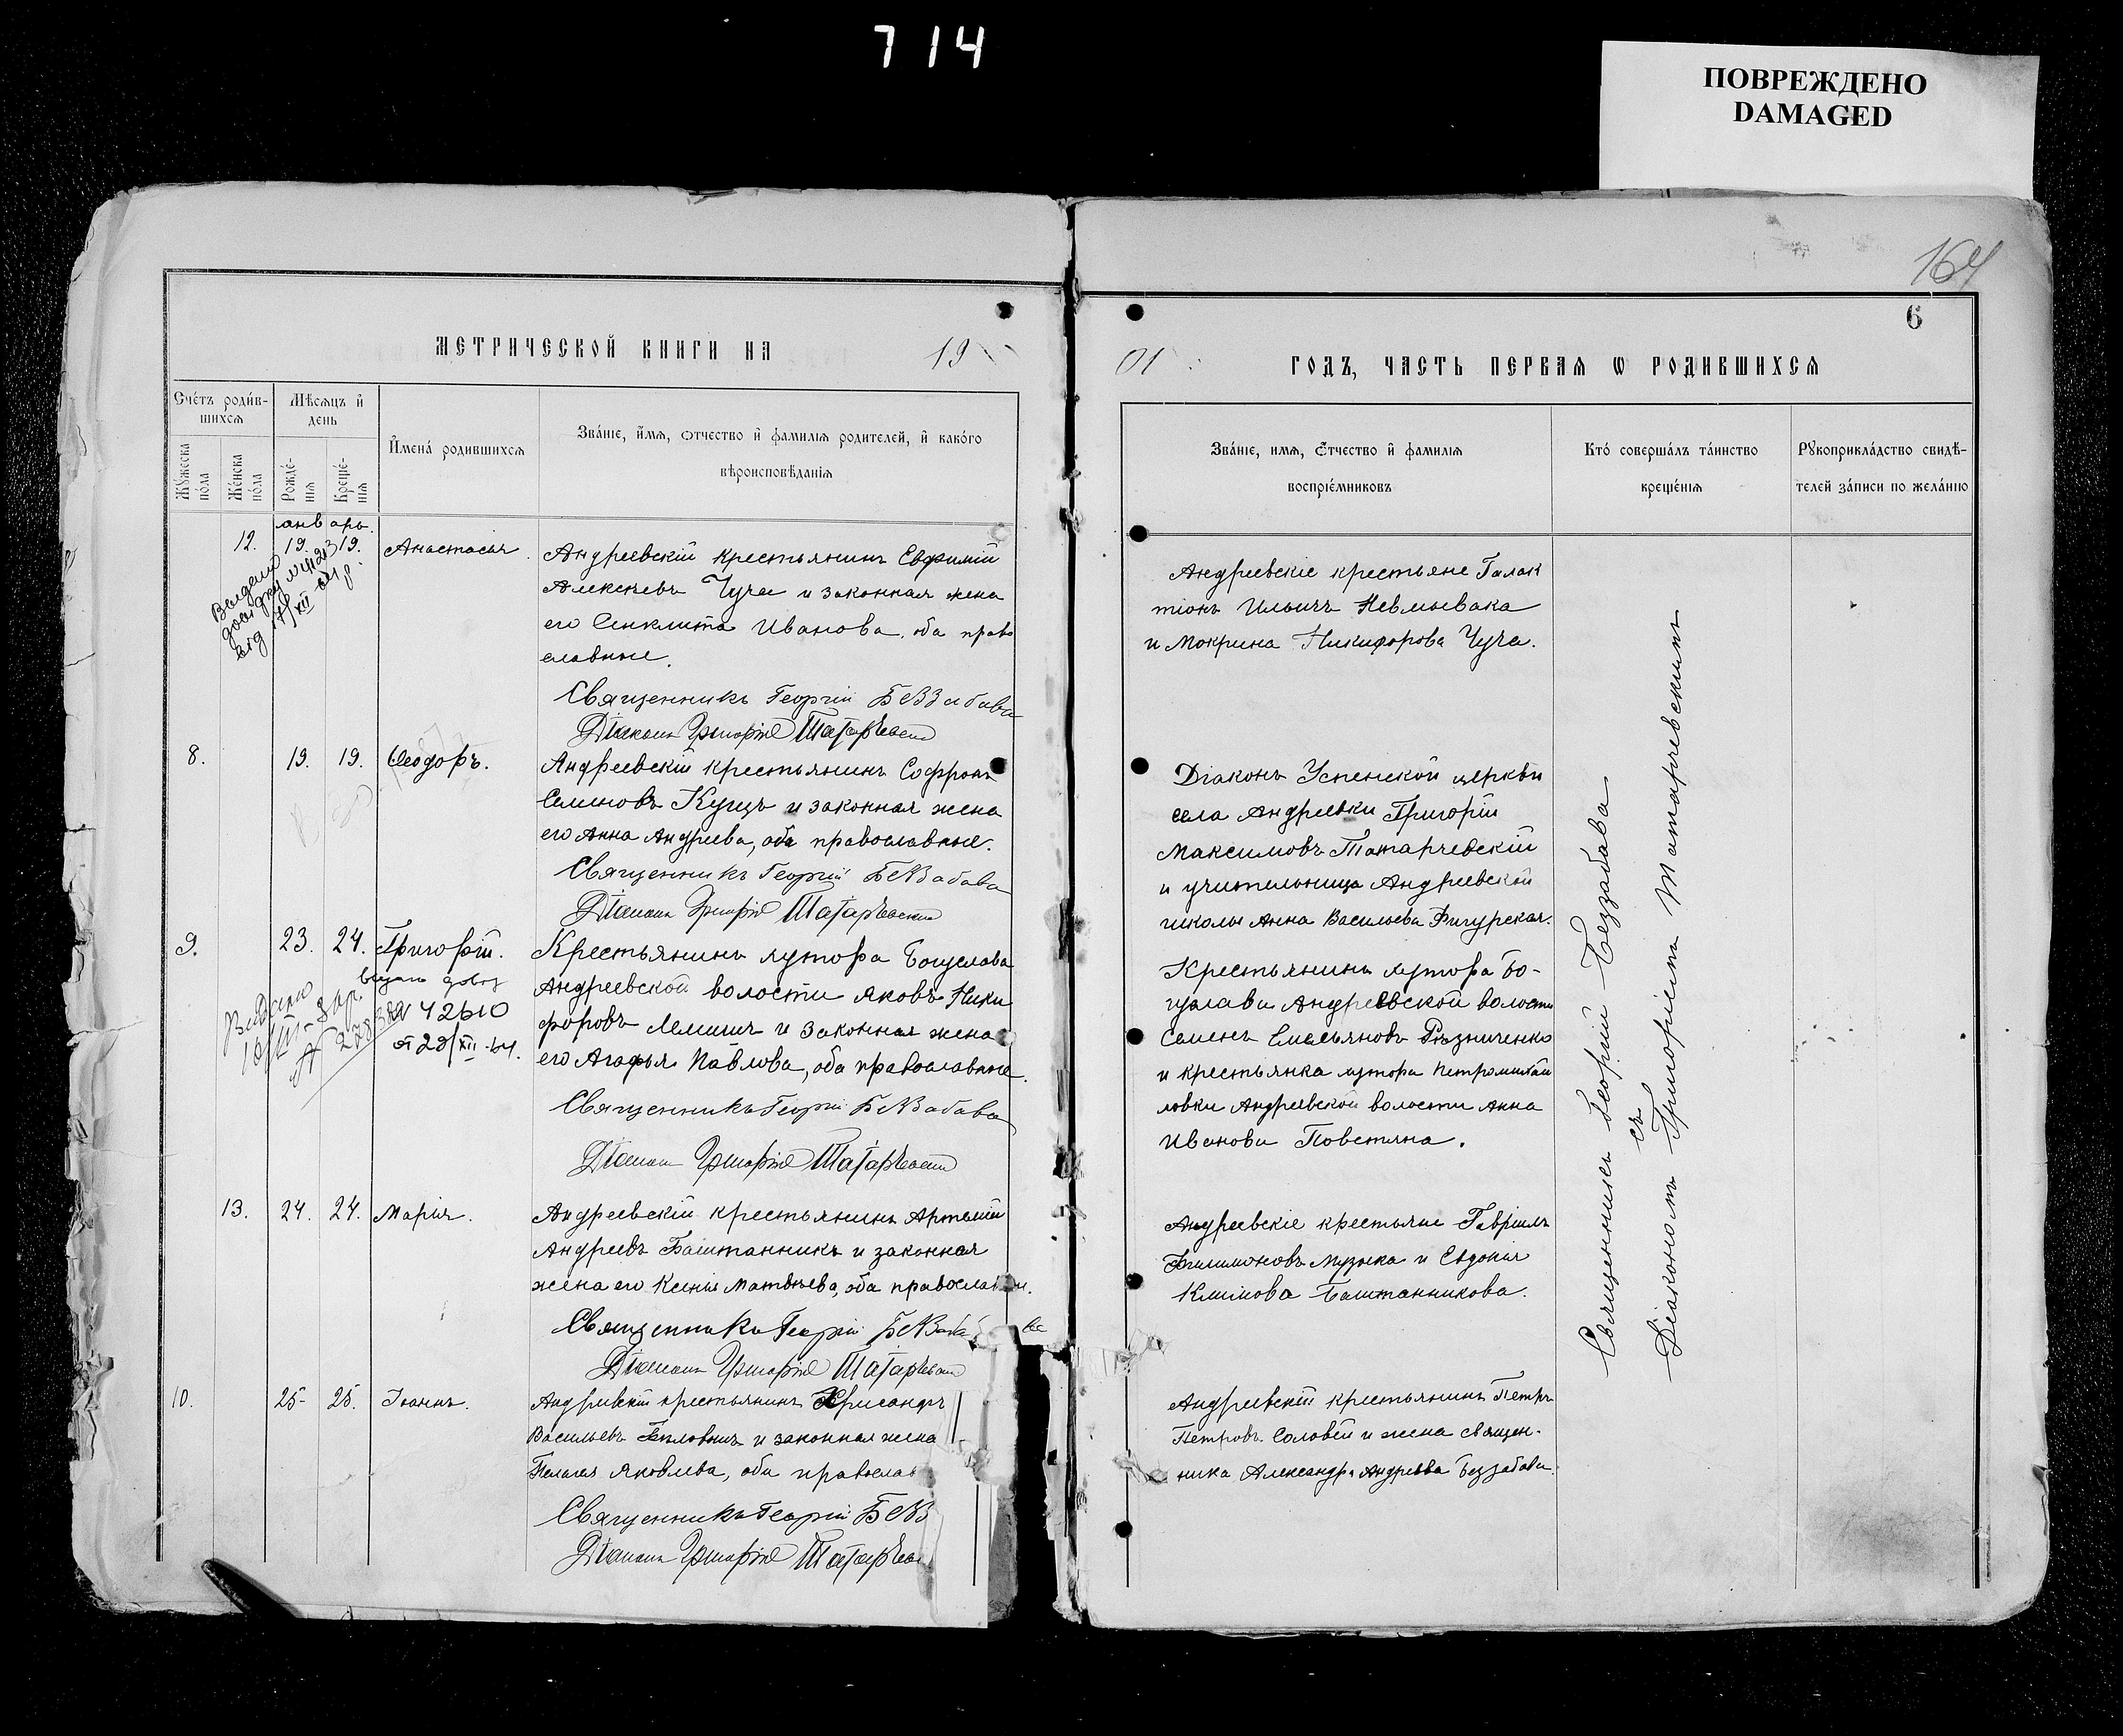 714
ПОВРЕЖДЕНО
DAMAGED
164
6
МЕТРИЧЕСКОЙ КНИГИ НА 19
01 ГОДЪ, ЧАСТЬ ПЕРВАЯ Ѡ РОДИВШИХСЯ
Сче́тъ роди́в-
шихся
Мѣсяцъ и҆
день
Му́жеска
по́ла
Же́нска
по́ла
Рожде́-
нія
Креще́-
нія
И҆мена́ родившихся
Зва́ніе, и҆́мя, ѻтчество и҆ фамилія родителей, и҆ како́го
вѣроисповѣ́данія
Зва́ніе, имя, ѻ҆́тчество и҆ фамилія
воспріе́мниковъ
Кто́ соверша́лъ та́инство
креще́нія
Рꙋкоприкла́дство свидѣ́-
телей за́писи по жела́нію
январь.
12. 19. 19. Анастасія
Андреевскій крестьянинъ Евфимій
Алексѣевъ Чуча и законная жена
его Синклита Иванова, оба право
славные.
Священникъ Георгій Беззабава
Діаконъ Григорій Татарчевскій
Андреевскіе крестьяне Галак
тіонъ Ильичъ Невмывака
и Мокрина Никифорова Чуча.
8. 19. 19. Ѳеодоръ.
Андреевскій крестьянинъ Софронъ
Семеновъ Куцъ и законная жена
его Анна Андреева, оба православные.
Священникъ Георгій Беззабава
Діаконъ Григорій Татарчевскій
Діаконъ Успенской церкви
села Андреевки Григорій
Максимовъ Татарчевскій
и учительница Андреевской
школы Анна Васильева Фигурская.
9. 23. 24. Григорій.
42610
Крестьянинъ хутора Богуслава
Андреевской волости Яковъ Ники
форовъ и законная жена
его Агафья Павлова, оба православные.
Священникъ Георгій Беззабава
Діаконъ Григорій Татарчевскій
Крестьянинъ хутора Бо-
гуслава Андреевской волости
Семенъ Емельяновъ Рѣзниченко
и крестьянка хутора Петромихай
ловки Андреевской волости Анна
Иванова Повстяна.
13. 24. 24. Марія.
Андреевскій крестьянинъ Артемій
Андреевъ Баштанникъ и законная
жена его Ксенія Матвѣева, оба православн.
Священникъ Георгій Беззабава
Діаконъ Григорій Татарчевскій
Андреевскіе крестьяне Гавріилъ
Филимоновъ Музыка и Евдокія
Климова Баштанникова.
10. 25. 25. Іоаннъ.
Андреевскій крестьянинъ Хрисанфъ
Васильевъ и законная жена
Пелагея Яковлева, оба православ
Священникъ Георгій Без
Діаконъ Григорій Татарчевс
Андреевскій крестьянинъ Петръ
Петровъ Соловей и жена священ-
ника Александра Андреева Беззабава.
Священникъ Георгій Беззабава
съ
Діакономъ Григоріемъ Татарчевскимъ